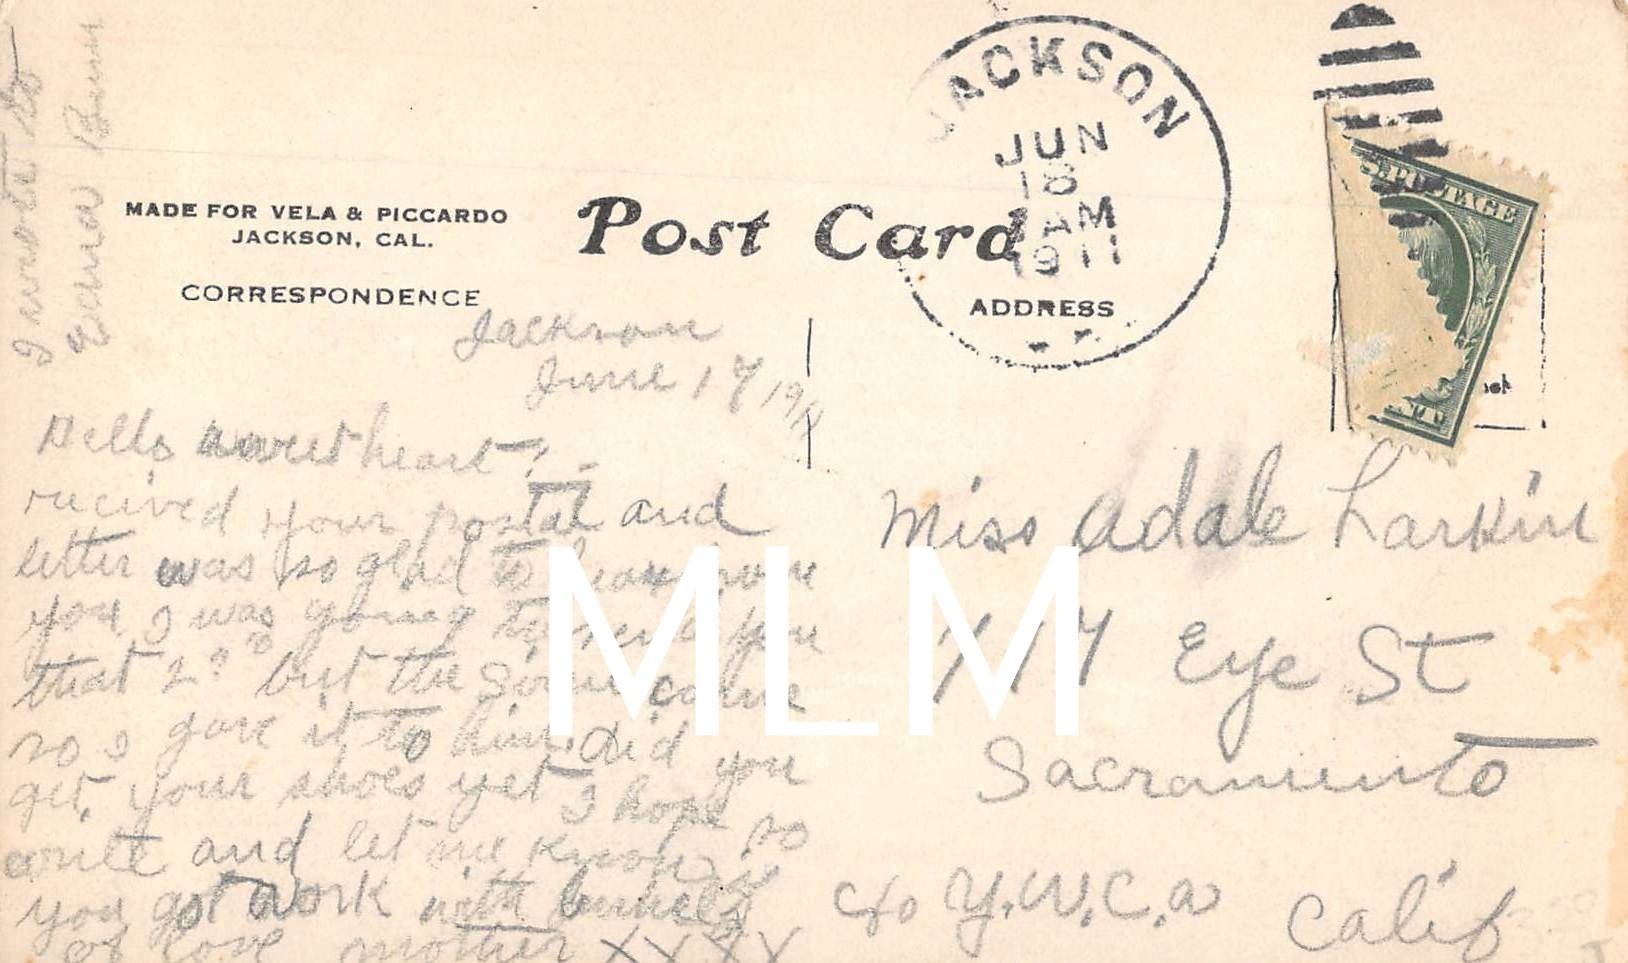 I wrote to
Edna Bunn
MADE FOR VELA & PICCARDO
JACKSON, CAL.
CORRESPONDENCE
Post Card
ADDRESS
JACKSON
JUN
18
AM
1911
S. POSTAGE
Jackson
June 17 1911
Hello sweetheart
recived your postal and
letter was so glad to hear from
you, I was going to send you
that 2 but the came
so I gave it to him. did you
get your shoes yet I hope so
write and let me know if
you got work with bunch
of love mother XXXX
Miss Adale Larkin
717 Eye St
Sacramento
c/o Y.W.C.a
Calif
MLM